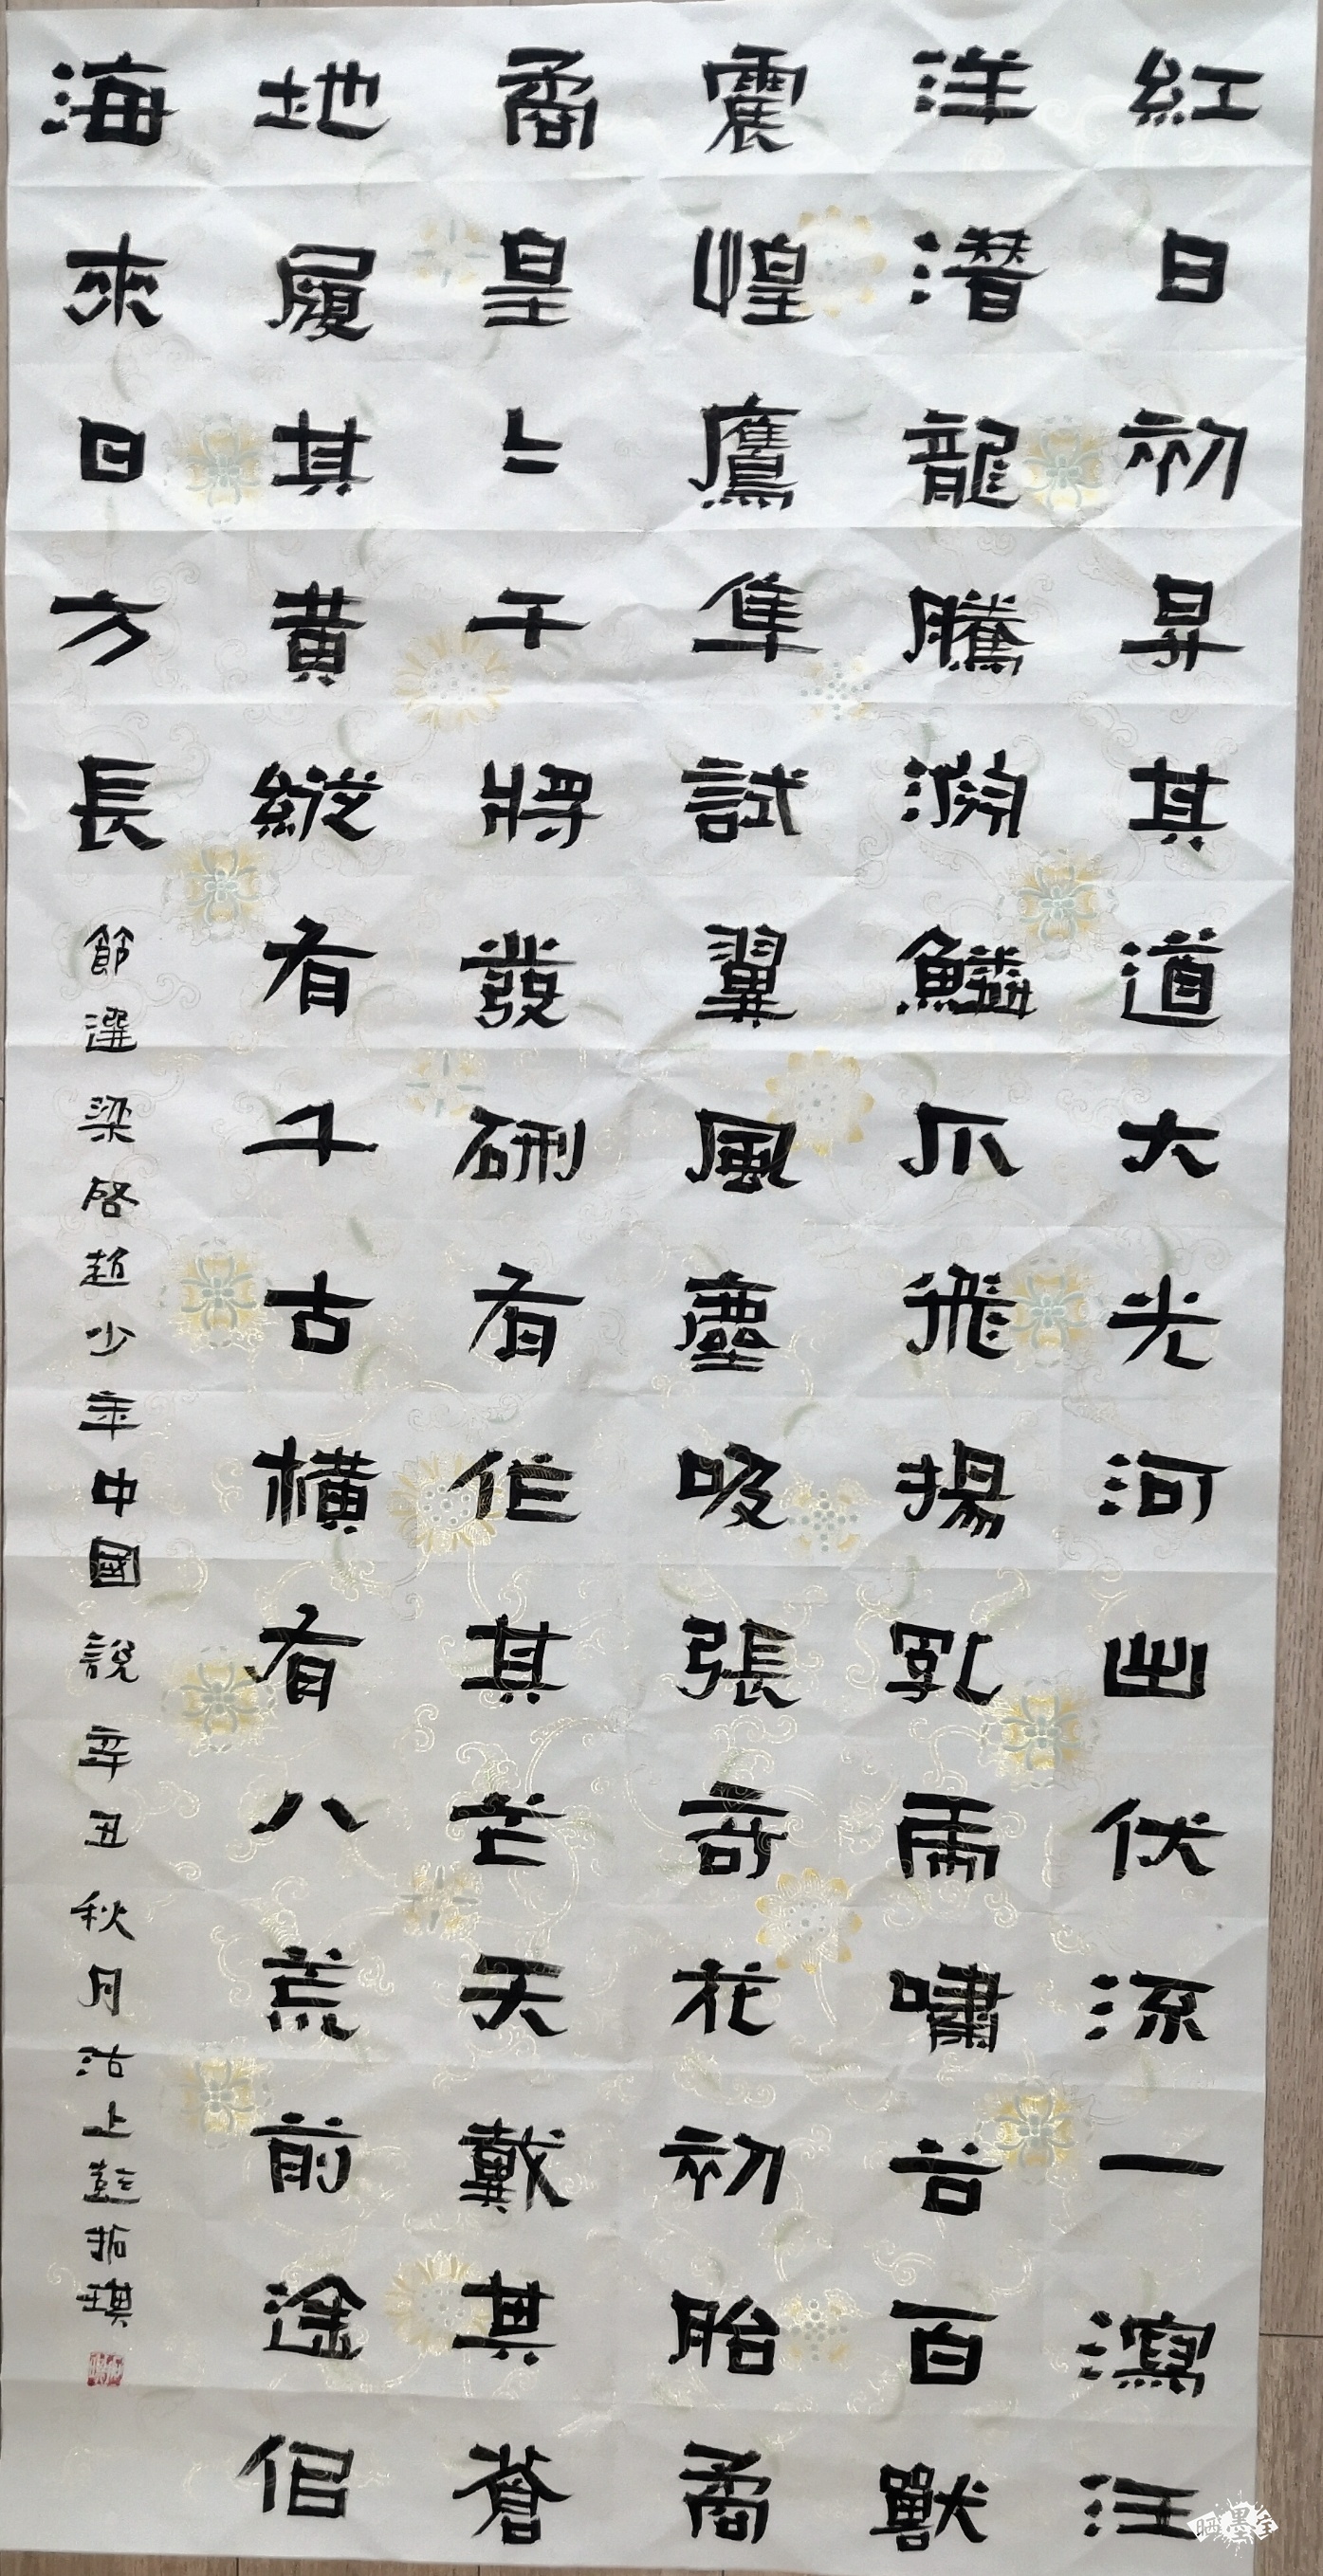 紅日初昇其道大光河出伏流一瀉汪
洋潛龍騰淵鱗爪飛揚乳虎嘯谷百獸
震惶鷹隼試翼風塵吸張奇花初胎矞
矞皇〻干將發硎有作其芒天戴其蒼
地履其黃縱有千古橫有八荒前途佀
海來日方長
節選梁啓超少年中國說 辛丑秋月沽上彭拓琪
晒墨宝